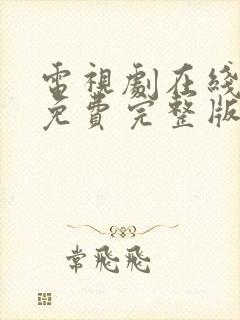 電視劇在綫
免費完整版
常飛飛